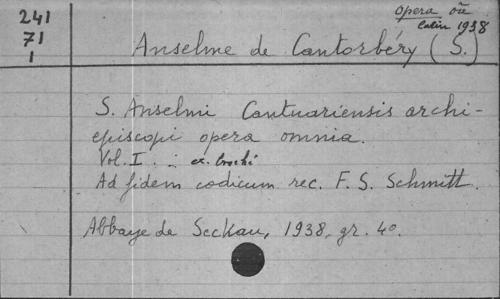 241
71
1
Opera oīa
latin 1938
Anselme de Cantorbéry (S.)
S. Anselmi Cantuariensis archi-
episcopi opera omnia.
Vol. I. : ex. broché
Ad fidem codicum rec. F. S. Schmitt.
Abbaye de Seckau, 1938, gr. 4o.